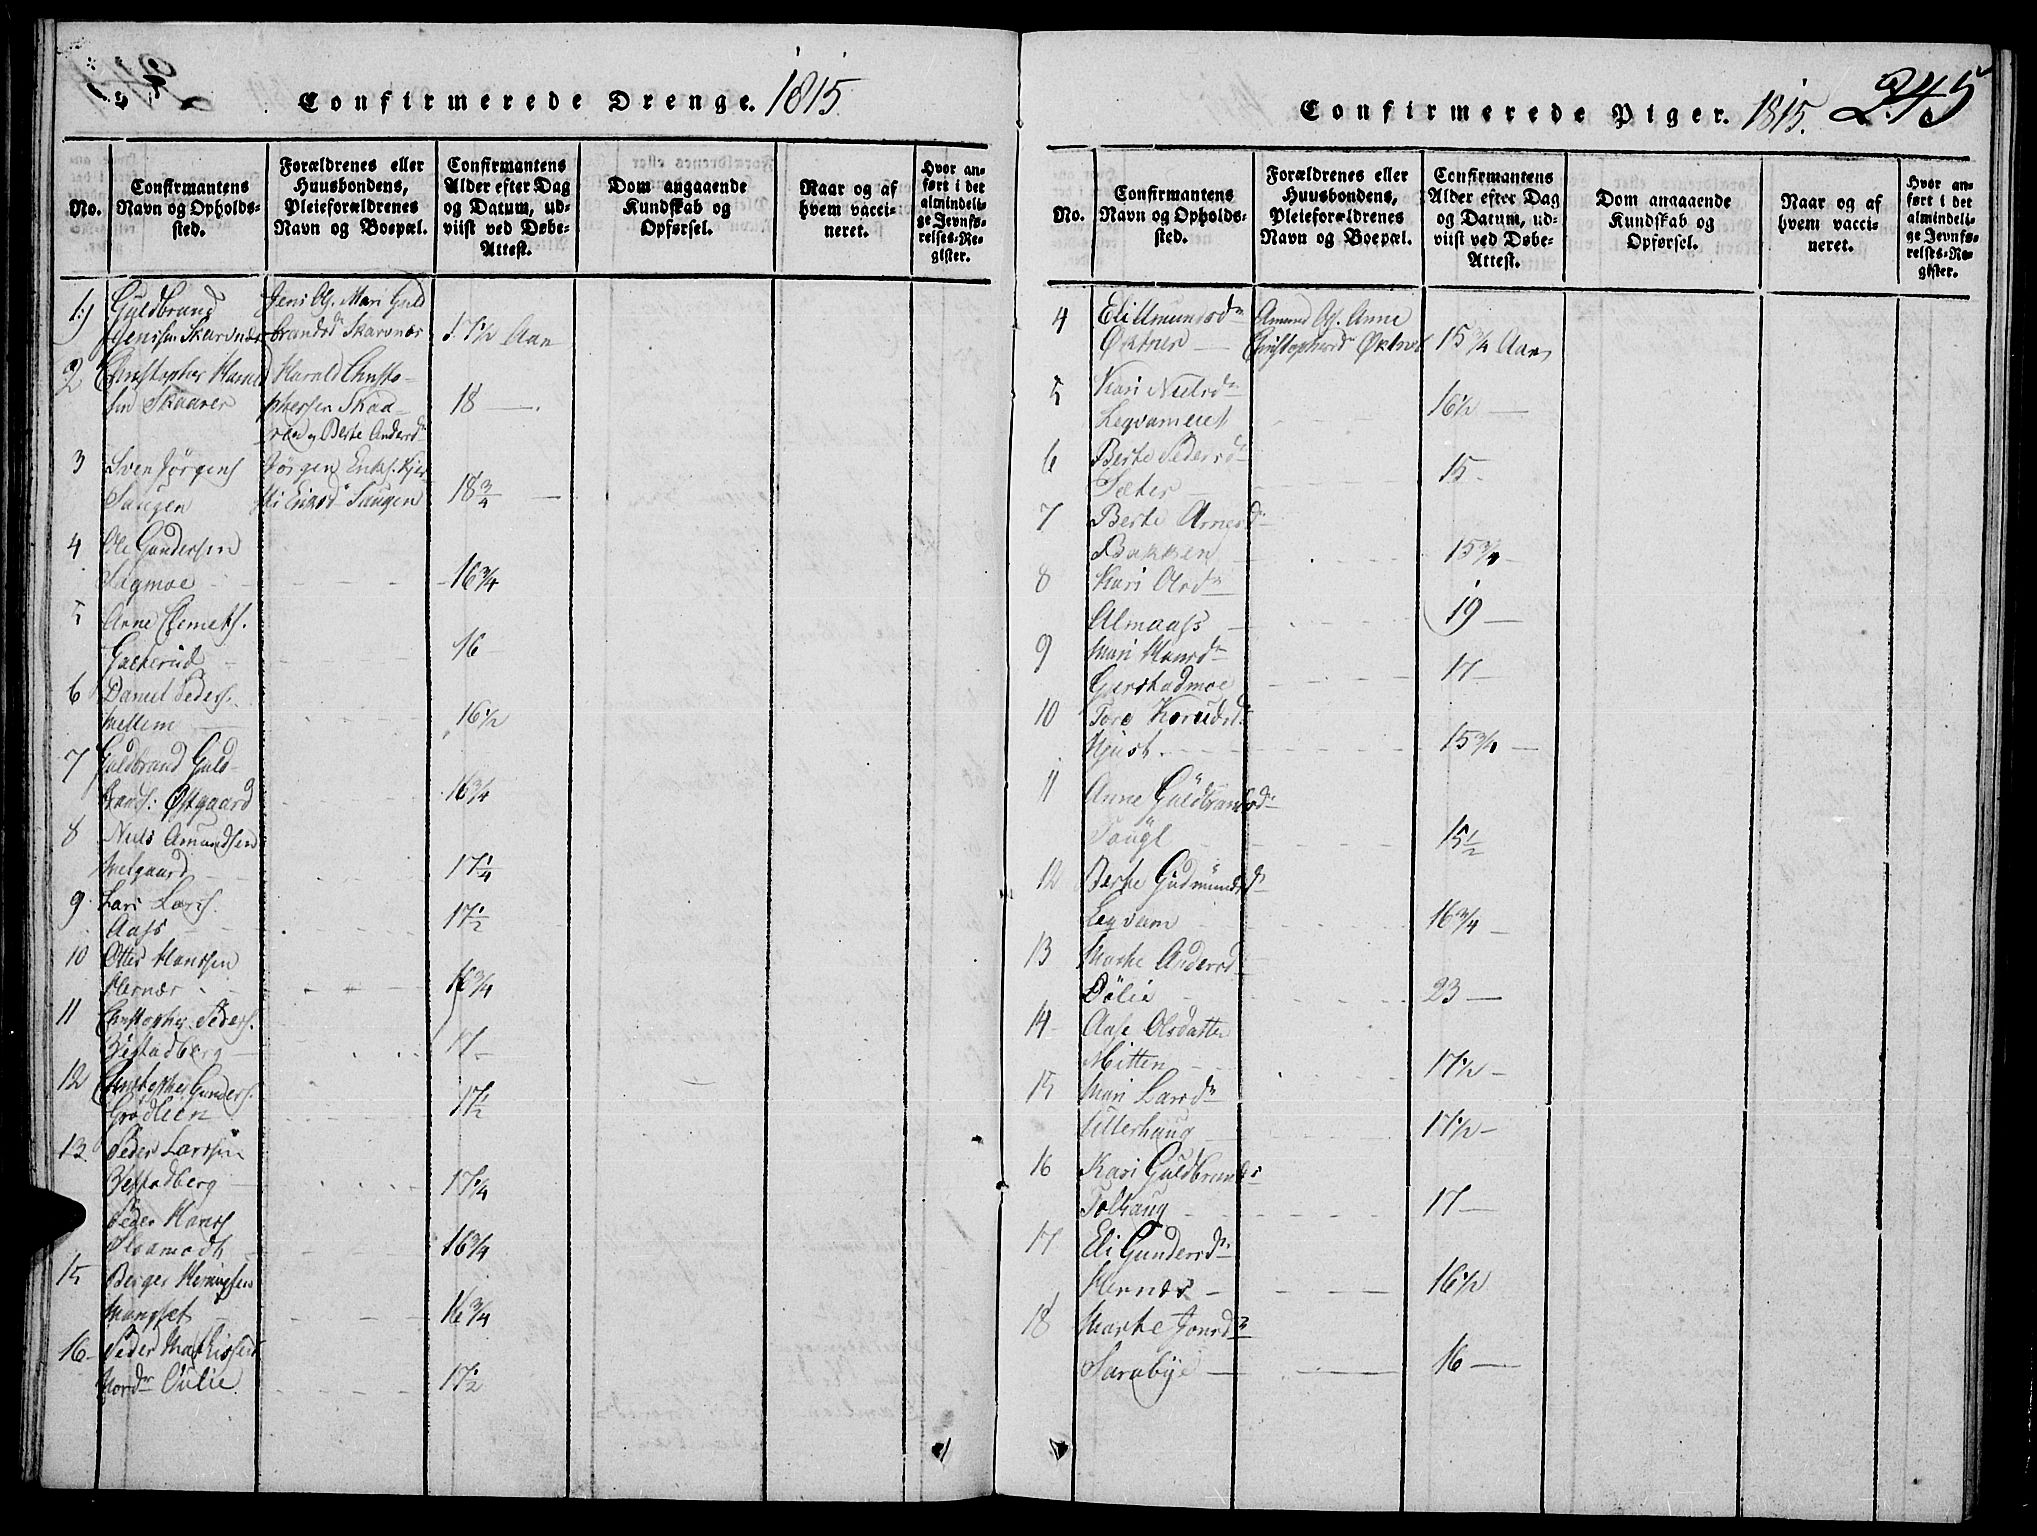 Confirmerede Drenge. 1815.
No.
Confirmantens Navn og Opholdssted.
Forældrenes eller Huusbondens, Pleieforældrenes Navn og Boepæl.
Confirmantens Alder efter Dag og Datum, udviist ved Døbe-Attest.
Dom angaaende Kundskab og Opførsel.
Naar og af hvem vaccineret.
Hvor anført i det almindelige Jevnførelses-Register.
1.) Guldbrand Jens og Mari Guld
Jenssen Skarnnær brandsd Skarvnær 17½ Aar
2 Christopher Harald Christo-
sen Skaarer phersen Skaa- 18 —
rer og Berte Andersd
3 Sven Jørgens Jørgen Eriks.
Saugen Eriksd Saugen 18 3/4 —
4 Ole Gundersen
Sagmoe 16 3/4
5 Arne Clemets.
Galterud 16
6 Daniel Peders.
Mellem 16½
7 Guldbrand Guld-
brands: Østgaard 16 3/4
8 Niels Amundsen
Melgaard 17¼
9 Lars Lars.
Aass 17½
10 Otter Hanssen
Hernær 16 3/4
11 Christopher Peders.
Bistadberg 17 —
12 Christopher Gunders.
Grødleen 17½
13 Peder Larssen
Bestadberg 17¼
Peder Hans
16 3/4
15 Berger Hemingsen
Mangset 16 3/4
16 Peder Mathissen
Nordr Øulie 17½
Confirmerede Piger. 1815. 245
No.
Confirmantens Navn og Opholdssted.
Forældrenes eller Huusbondens, Pleieforældrenes Navn og Boepæl.
Confirmantens Alder efter Dag og Datum, udviist ved Døbe-Attest.
Dom angaaende Kundskab og Opførsel.
Naar og af hvem vaccineret.
Hvor anført i det almindelige Jevnførelses-Register.
4 Eli Amundsdr Amund og Anne
Øktner Christophersdr Øktner 15 3/4 Aar
5 Kari Nielsdr
16½ —
6 Berte Pedersdr
Sæter 15
7 Berte Arnesdr
Bakken 15 3/4 —
8 Kari Olsdr
Almaass 19 —
9 Mari Hansdr
Gjerstadmoe 17 —
10 Tore Knudsdr
15 3/4 —
11 Anne Guldbrandsdr
Saugl 15½
12 Berte Gudmundsdr
Legvam 16 3/4 —
13 Marte Andersd
Dølie 23 —
14 Aase Olsdatter
Mitten 17½ —
15 Mari Larsdr
Ullerhaug 17½ —
16 Kari Guldbrands
Tolhaug 17 —
17 Eli Gundersdr
Hernæs 16½
18 Marte Jonsdr
Sarabye 16 —